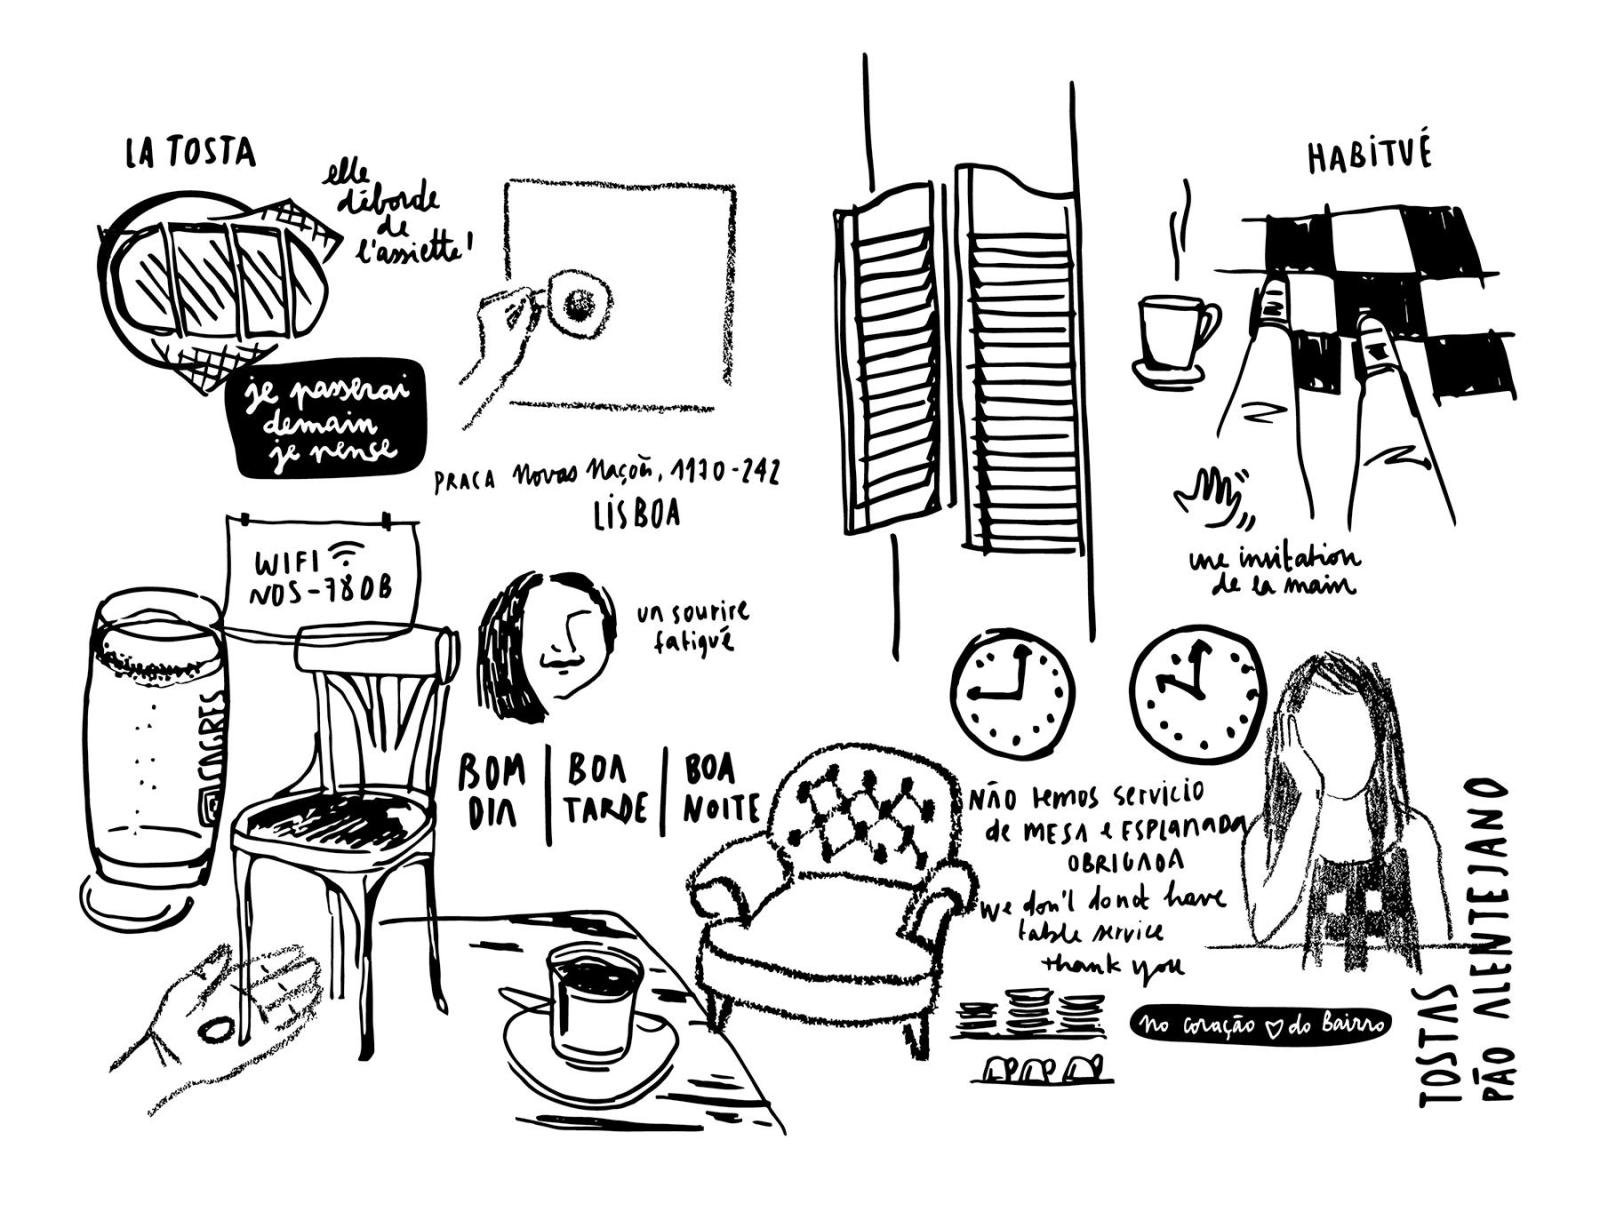 LA TOSTA
elle
déborde
de
l'assiette!
je passerai
demain
je pense
PRACA Novas Nações, 1170-242
LISBOA
HABITUÉ
une invitation
de la main
WIFI
NOS-780B
SAGRES
un sourire
fatigué
BOM
DIA
BOA
TARDE
BOA
NOITE
NÃO temos servicio
de MESA e ESPLANADA
OBRIGADA
We don't donot have
table service
thank you
No coração do Bairro
TOSTAS
PÃO ALENTEJANO